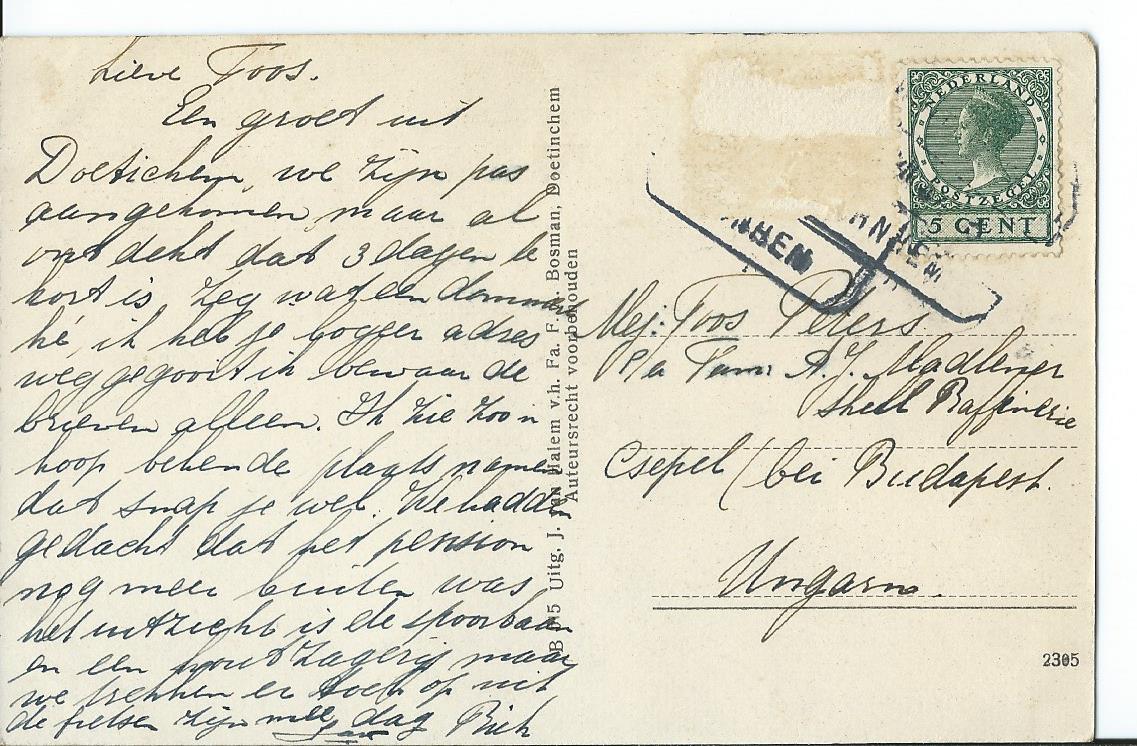 Lieve Toos.
Een groet uit
Doetichem, we zijn pas
aangekomen, maar al
ontdekt dat 3 dagen te
kort is, zeg wat een
hé, ik heb je adres
weggegooit ik bewaar de
brieven alleen. Ik zie zoo'n
hoop bekende plaats namen
dat snap je wel. We hadden
gedacht dat het pension
nog meer buiten was
het uitzicht is de spoorbaan
en een houtzagerij maar
we trekken er toch op uit
de fietsen zijn mee dag
B 15 Uitg. J. van Halem v.h. Fa. F. Bosman, Doetinchem
Auteursrecht voorbehouden
NEDERLAND
POSTZEGEL
5 CENT
ARNHEM
NHEM
Mej: Toos Peters
p/a Fam: A. J. Madlener
Shell Raffinerie
Csepel (bei Budapest.
Ungarn.
2305